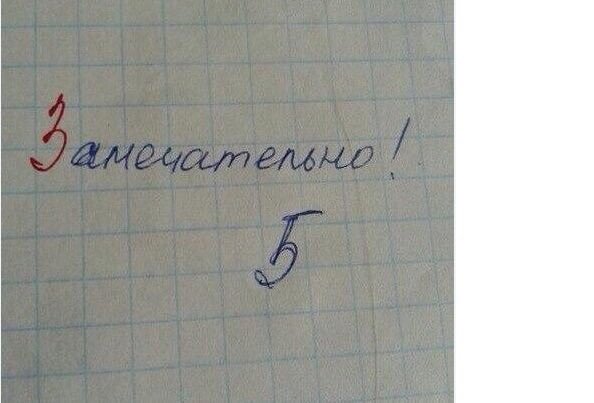 Замечательно!
5